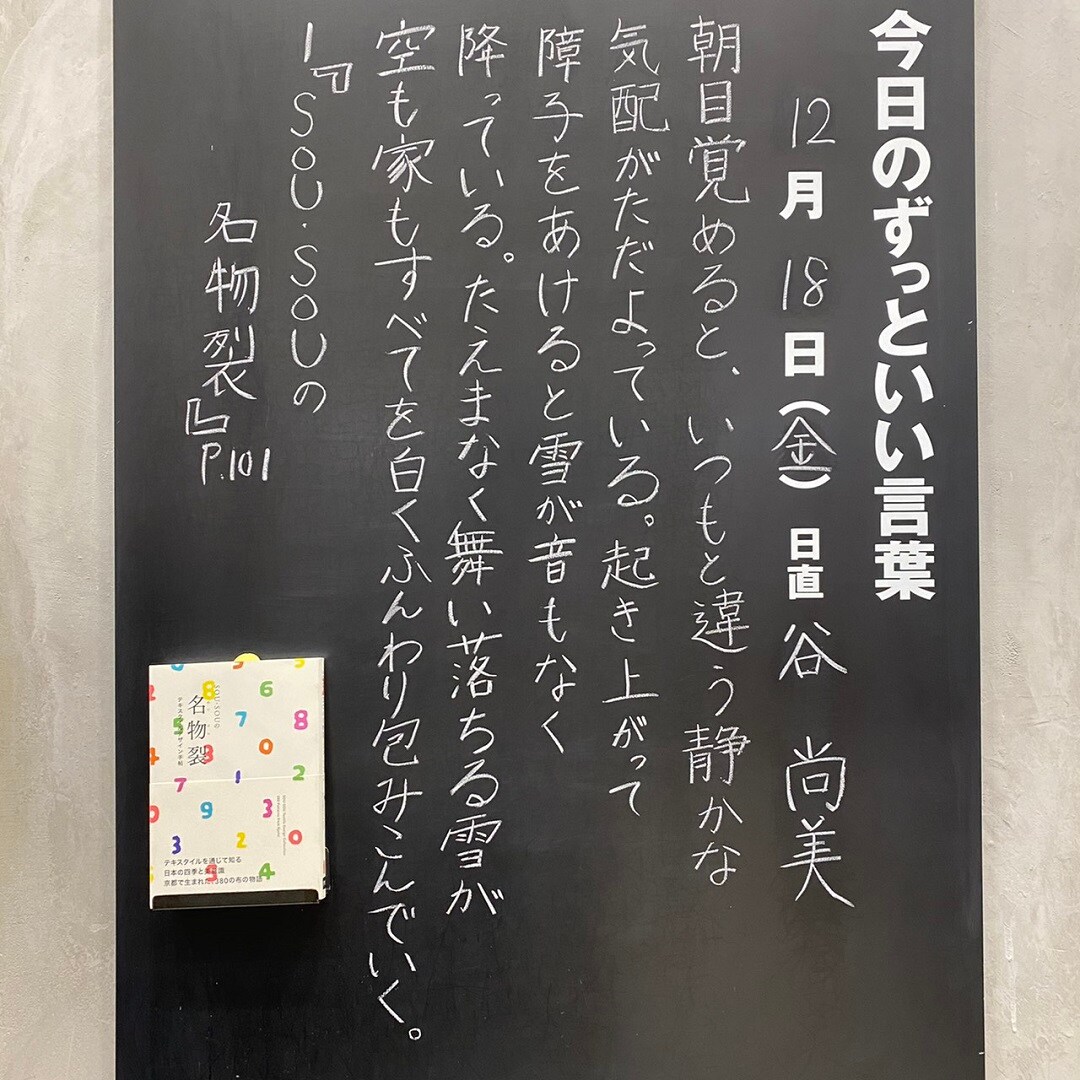 今日のずっといい言葉
12月18日(金) 日直 谷 尚美
朝目覚めると、いつもと違う静かな
気配がただよっている。起き上がって
障子をあけると雪が音もなく
降っている。たえまなく舞い落ちる雪が
空も家もすべてを白くふんわり包みこんでいく。
ー『SOU・SOUの
名物裂』P.101
SOU・SOUの
名物裂
テキスタイルデザイン手帖
テキスタイルを通じて知る
日本の四季と美意識
京都で生まれた、380の布の物語